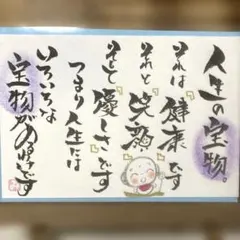 人生の宝物。
それは「健康」です
それと「笑顔」
そして「優しさ」です
つまり人生には
いろいろな
宝物があるのです